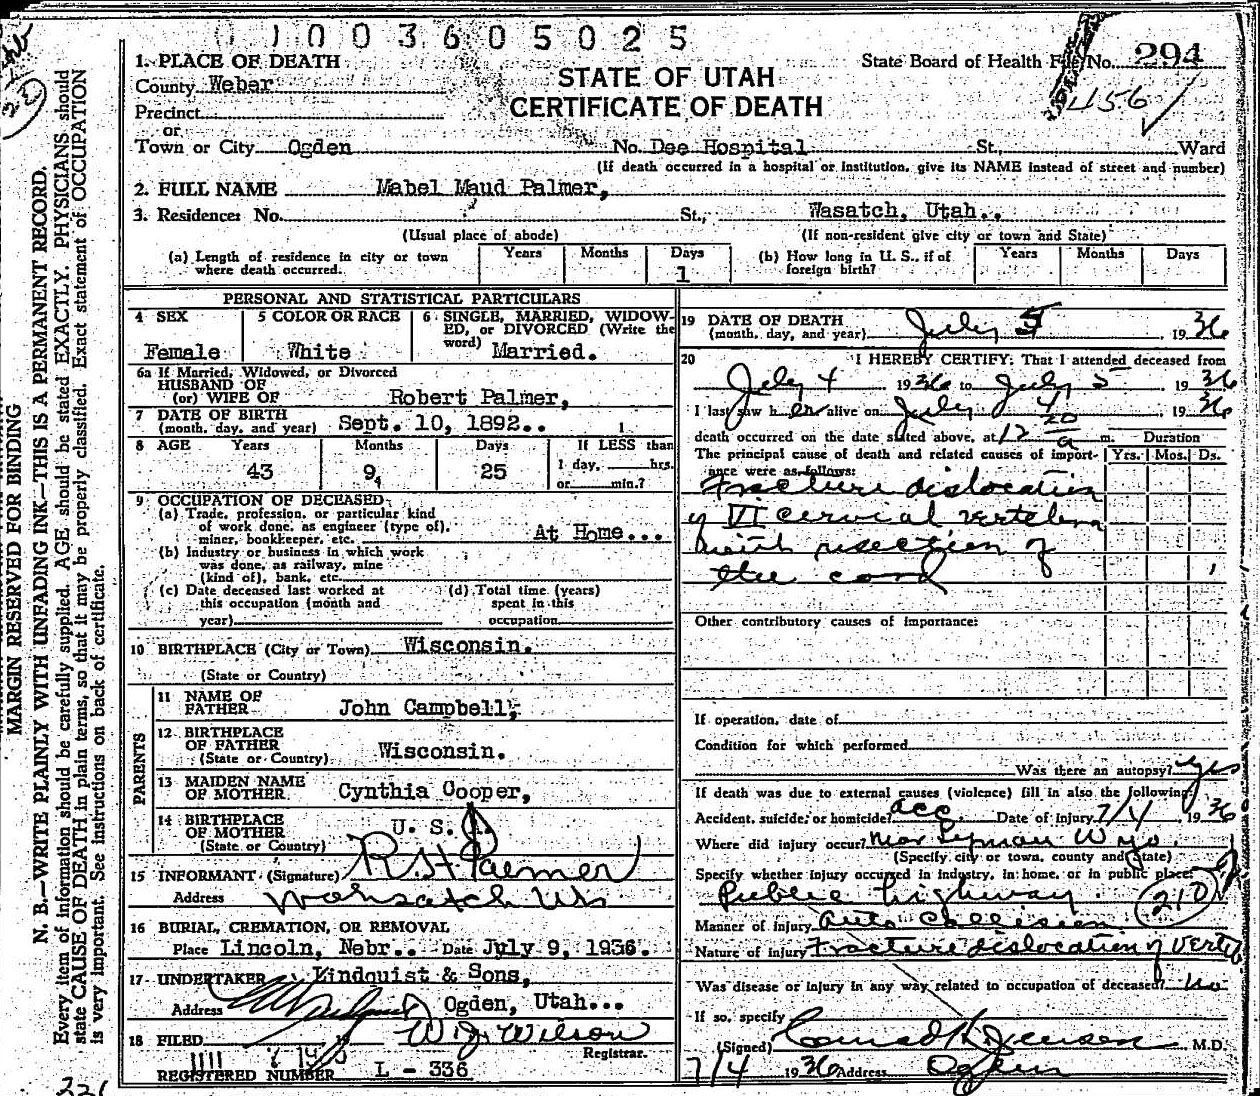 0 1 0 0 3 6 0 5 0 2 5
1. PLACE OF DEATH
County Weber
Precinct
or
Town or City Ogden No. Dee Hospital St., Ward
STATE OF UTAH
CERTIFICATE OF DEATH
State Board of Health File No. 294
456
(If death occurred in a hospital or institution, give its NAME instead of street and number)
2. FULL NAME Mabel Maud Palmer,
3. Residence: No. St., Wasatch, Utah..
(Usual place of abode) (If non-resident give city or town and State)
(a) Length of residence in city or town where death occurred. Years Months Days 1
(b) How long in U. S., if of foreign birth? Years Months Days
PERSONAL AND STATISTICAL PARTICULARS
4 SEX Female
5 COLOR OR RACE White
6 SINGLE, MARRIED, WIDOWED, or DIVORCED (Write the word) Married.
6a If Married, Widowed, or Divorced
HUSBAND OF
(or) WIFE OF Robert Palmer,
7 DATE OF BIRTH
(month, day, and year) Sept. 10, 1892..
8 AGE Years Months Days If LESS than
43 9 25 1 day, hrs.
or min.?
9 OCCUPATION OF DECEASED
(a) Trade, profession, or particular kind
of work done, as engineer (type of),
miner, bookkeeper, etc. At Home...
(b) Industry or business in which work
was done, as railway, mine
(kind of), bank, etc.
(c) Date deceased last worked at
this occupation (month and
year)
(d) Total time (years)
spent in this
occupation
10 BIRTHPLACE (City or Town) Wisconsin.
(State or Country)
PARENTS
11 NAME OF
FATHER John Campbell,
12 BIRTHPLACE
OF FATHER
(State or Country) Wisconsin.
13 MAIDEN NAME
OF MOTHER Cynthia Cooper,
14 BIRTHPLACE
OF MOTHER
(State or Country) U. S. A.
15 INFORMANT (Signature) R.H. Palmer
Address Wahsatch Ut.
16 BURIAL, CREMATION, OR REMOVAL
Place Lincoln, Nebr.. Date July 9, 1936.
17 UNDERTAKER Lindquist & Sons,
Address Ogden, Utah...
18 FILED 19 W. J. Wilson
Registrar.
REGISTERED NUMBER L - 336
19 DATE OF DEATH
(month, day, and year) July 5, 1936
20 I HEREBY CERTIFY: That I attended deceased from
July 4 1936 to July 5, 1936
I last saw her alive on July 4, 1936
death occurred on the date stated above, at 12 20 a m.
The principal cause of death and related causes of importance were as follows:
Duration
Yrs. Mos. Ds.
Fracture dislocation
of VI cervical vertebra
with resection of
the cord 1
Other contributory causes of importance:
If operation, date of
Condition for which performed
Was there an autopsy? yes
If death was due to external causes (violence) fill in also the following:
Accident, suicide, or homicide? acc Date of injury 7/4, 1936
Where did injury occur? Near Lyman Wyo.
(Specify city or town, county and State)
Specify whether injury occurred in industry, in home, or in public place.
Public highway. 210
Manner of injury Auto Collision
Nature of injury Fracture dislocation of verteb
Was disease or injury in any way related to occupation of deceased? No
If so, specify
(Signed) Conrad H. Jensen M.D.
7/4 1936 Address Ogden
MARGIN RESERVED FOR BINDING
N. B.—WRITE PLAINLY WITH UNFADING INK—THIS IS A PERMANENT RECORD.
Every item of information should be carefully supplied. AGE should be stated EXACTLY. PHYSICIANS should
state CAUSE OF DEATH in plain terms, so that it may be properly classified. Exact statement of OCCUPATION
is very important. See instructions on back of certificate.